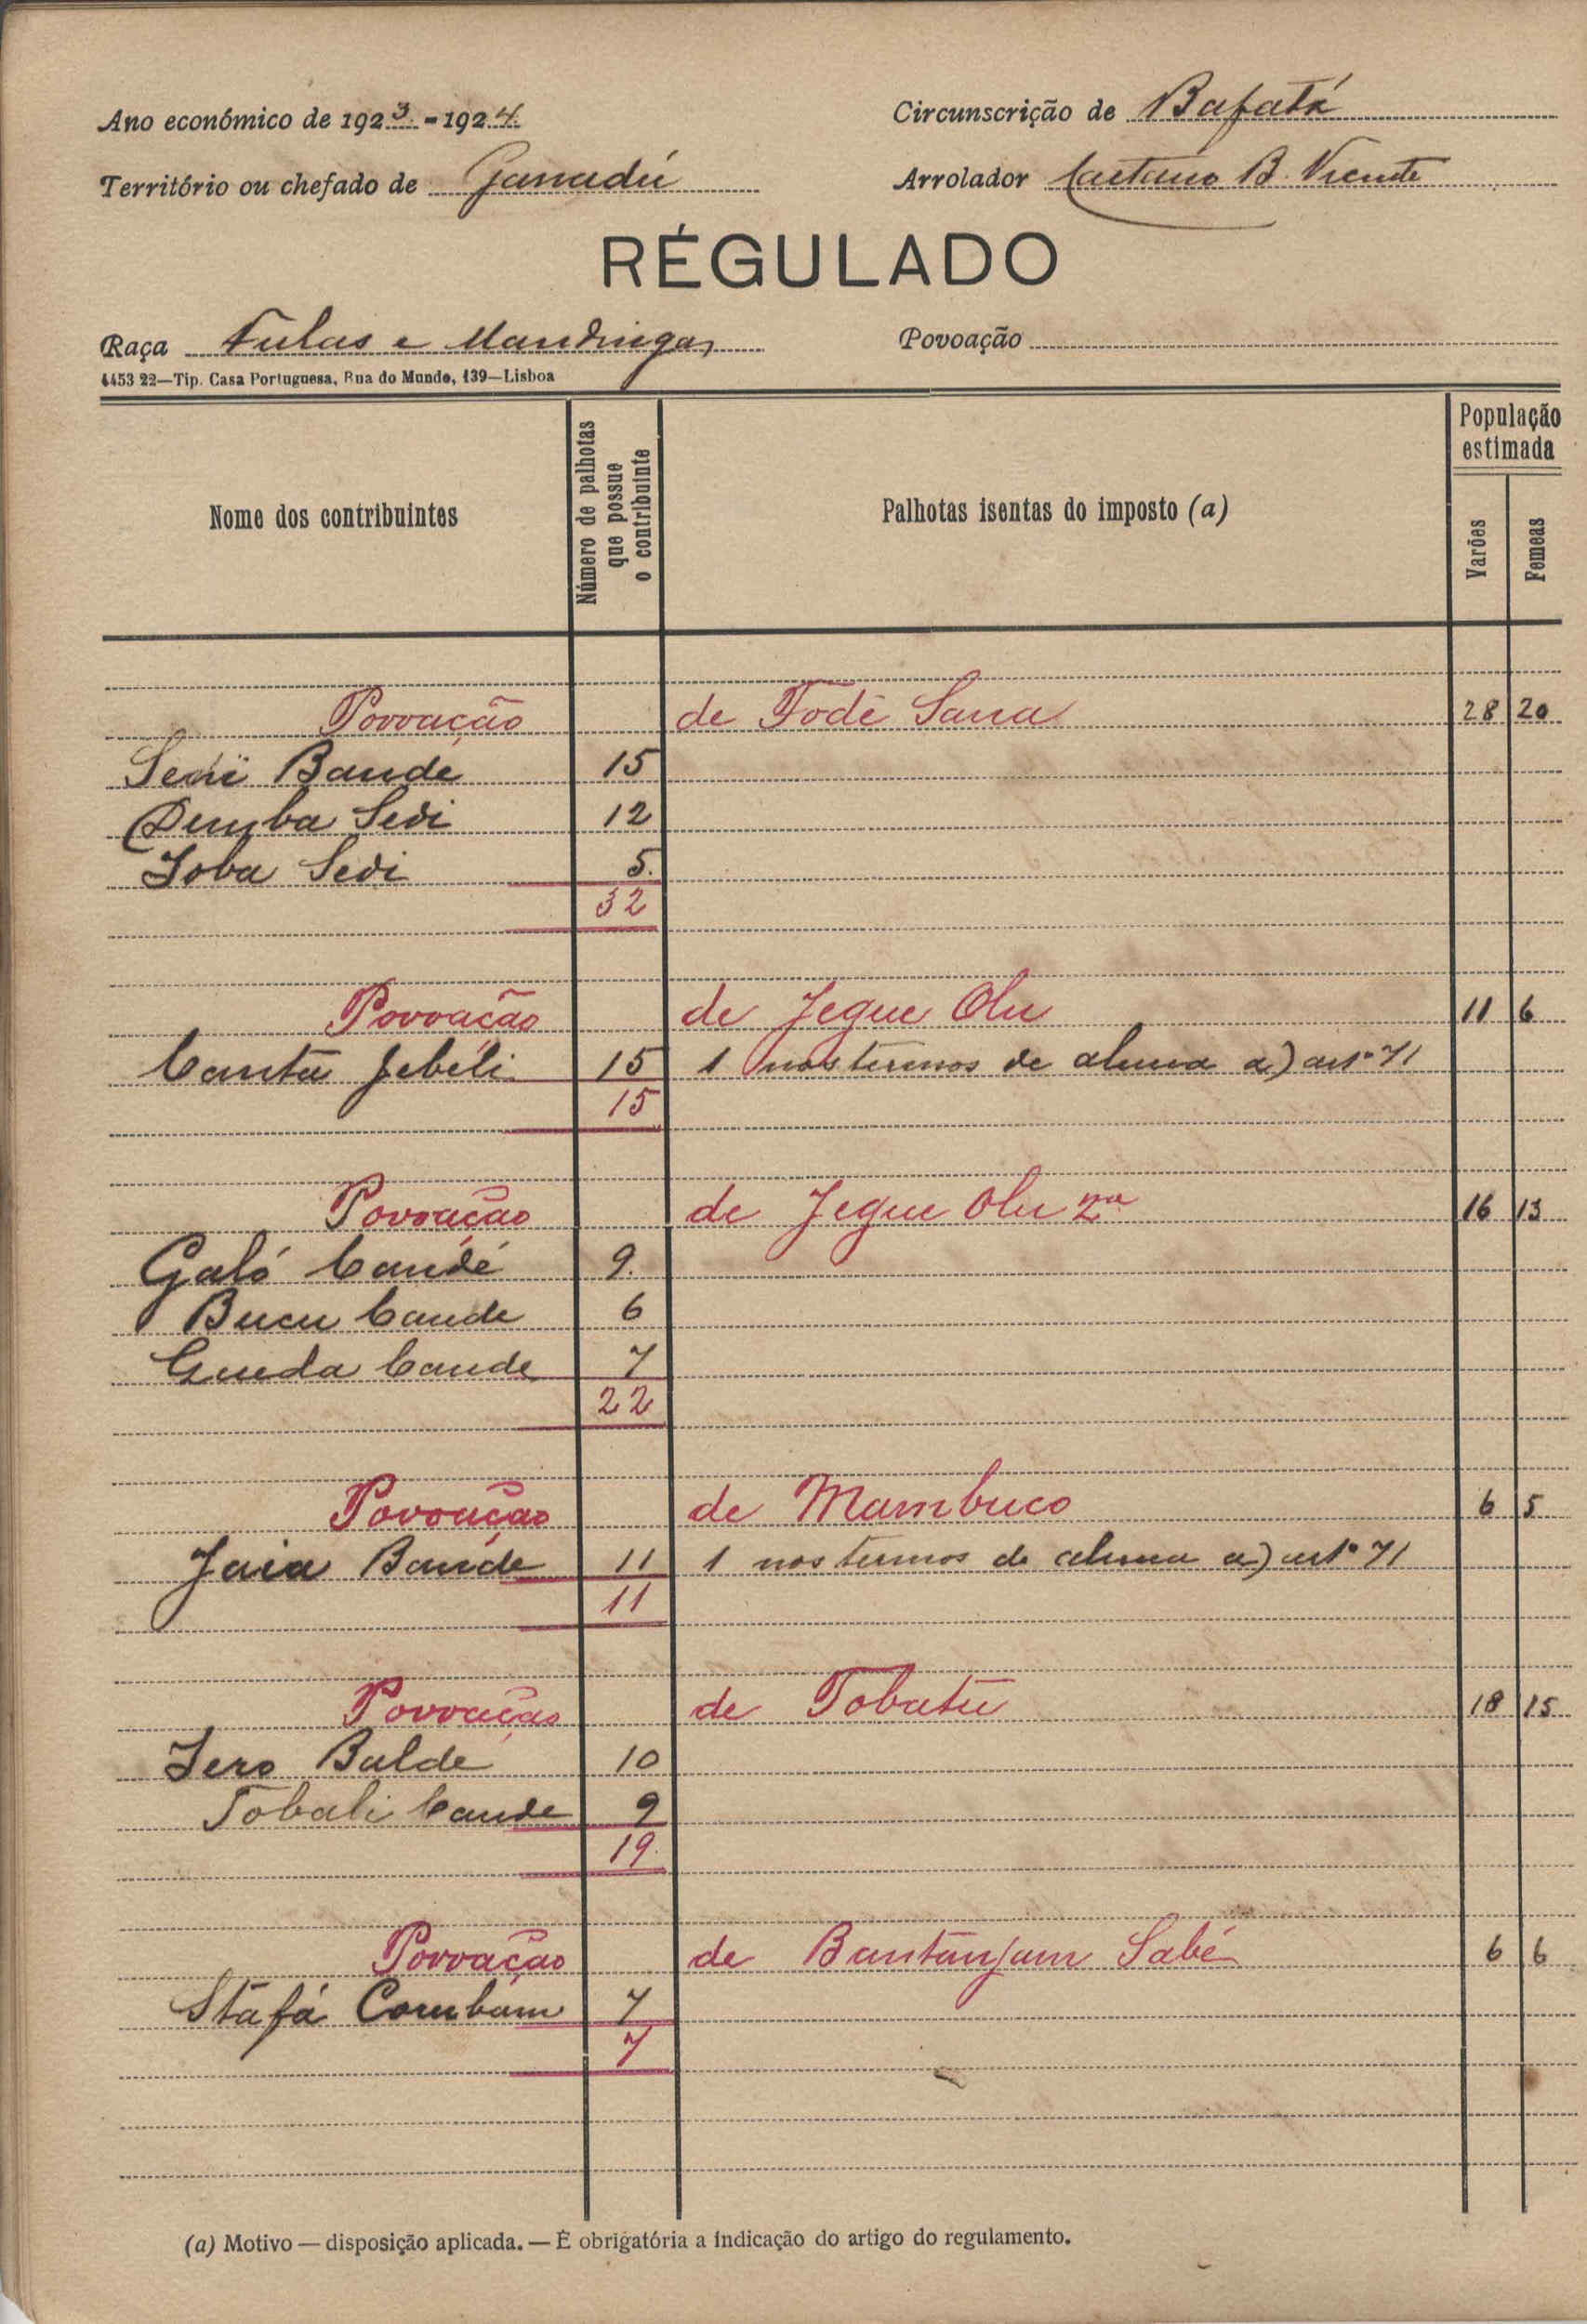 Ano económico de 1923-1924. Circunscrição de Bafatá
Território ou chefado de Ganadú Arrolador Caetano B. Vicente
RÉGULADO
Raça Fulas e Mandingas Povoação
4453 22—Tip. Casa Portuguesa, Rua do Mundo, 139—Lisboa
Nome dos contribuintes
Número de palhotas que possue o contribuinte
Palhotas isentas do imposto (a)
População estimada
Varões
Femeas
Povoação de Fodé Sana 28 20
Bande 15
Demba Sedi 12
Joba Sedi 5.
32
Povoação de Jegue Olu 11 6
Cantà Jebéli 15 1 nos termos de alinea a) artº 71
15
Povoação de Jegue Olu 2ª 16 13
Galó Candé 9.
Bucu Cande 6
Gueda Cande 7
22
Povoação de Mambuco 6 5
Jaia Bande 11 1 nos termos de alinea a) artº 71
11
Povoação de Tobatu 18 15
Jero Balde 10
Tobali Cande 9
19.
Povoação de Bantanjam Sabé 6 6
Stafá Combam 7
7
(a) Motivo — disposição aplicada. — É obrigatória a indicação do artigo do regulamento.